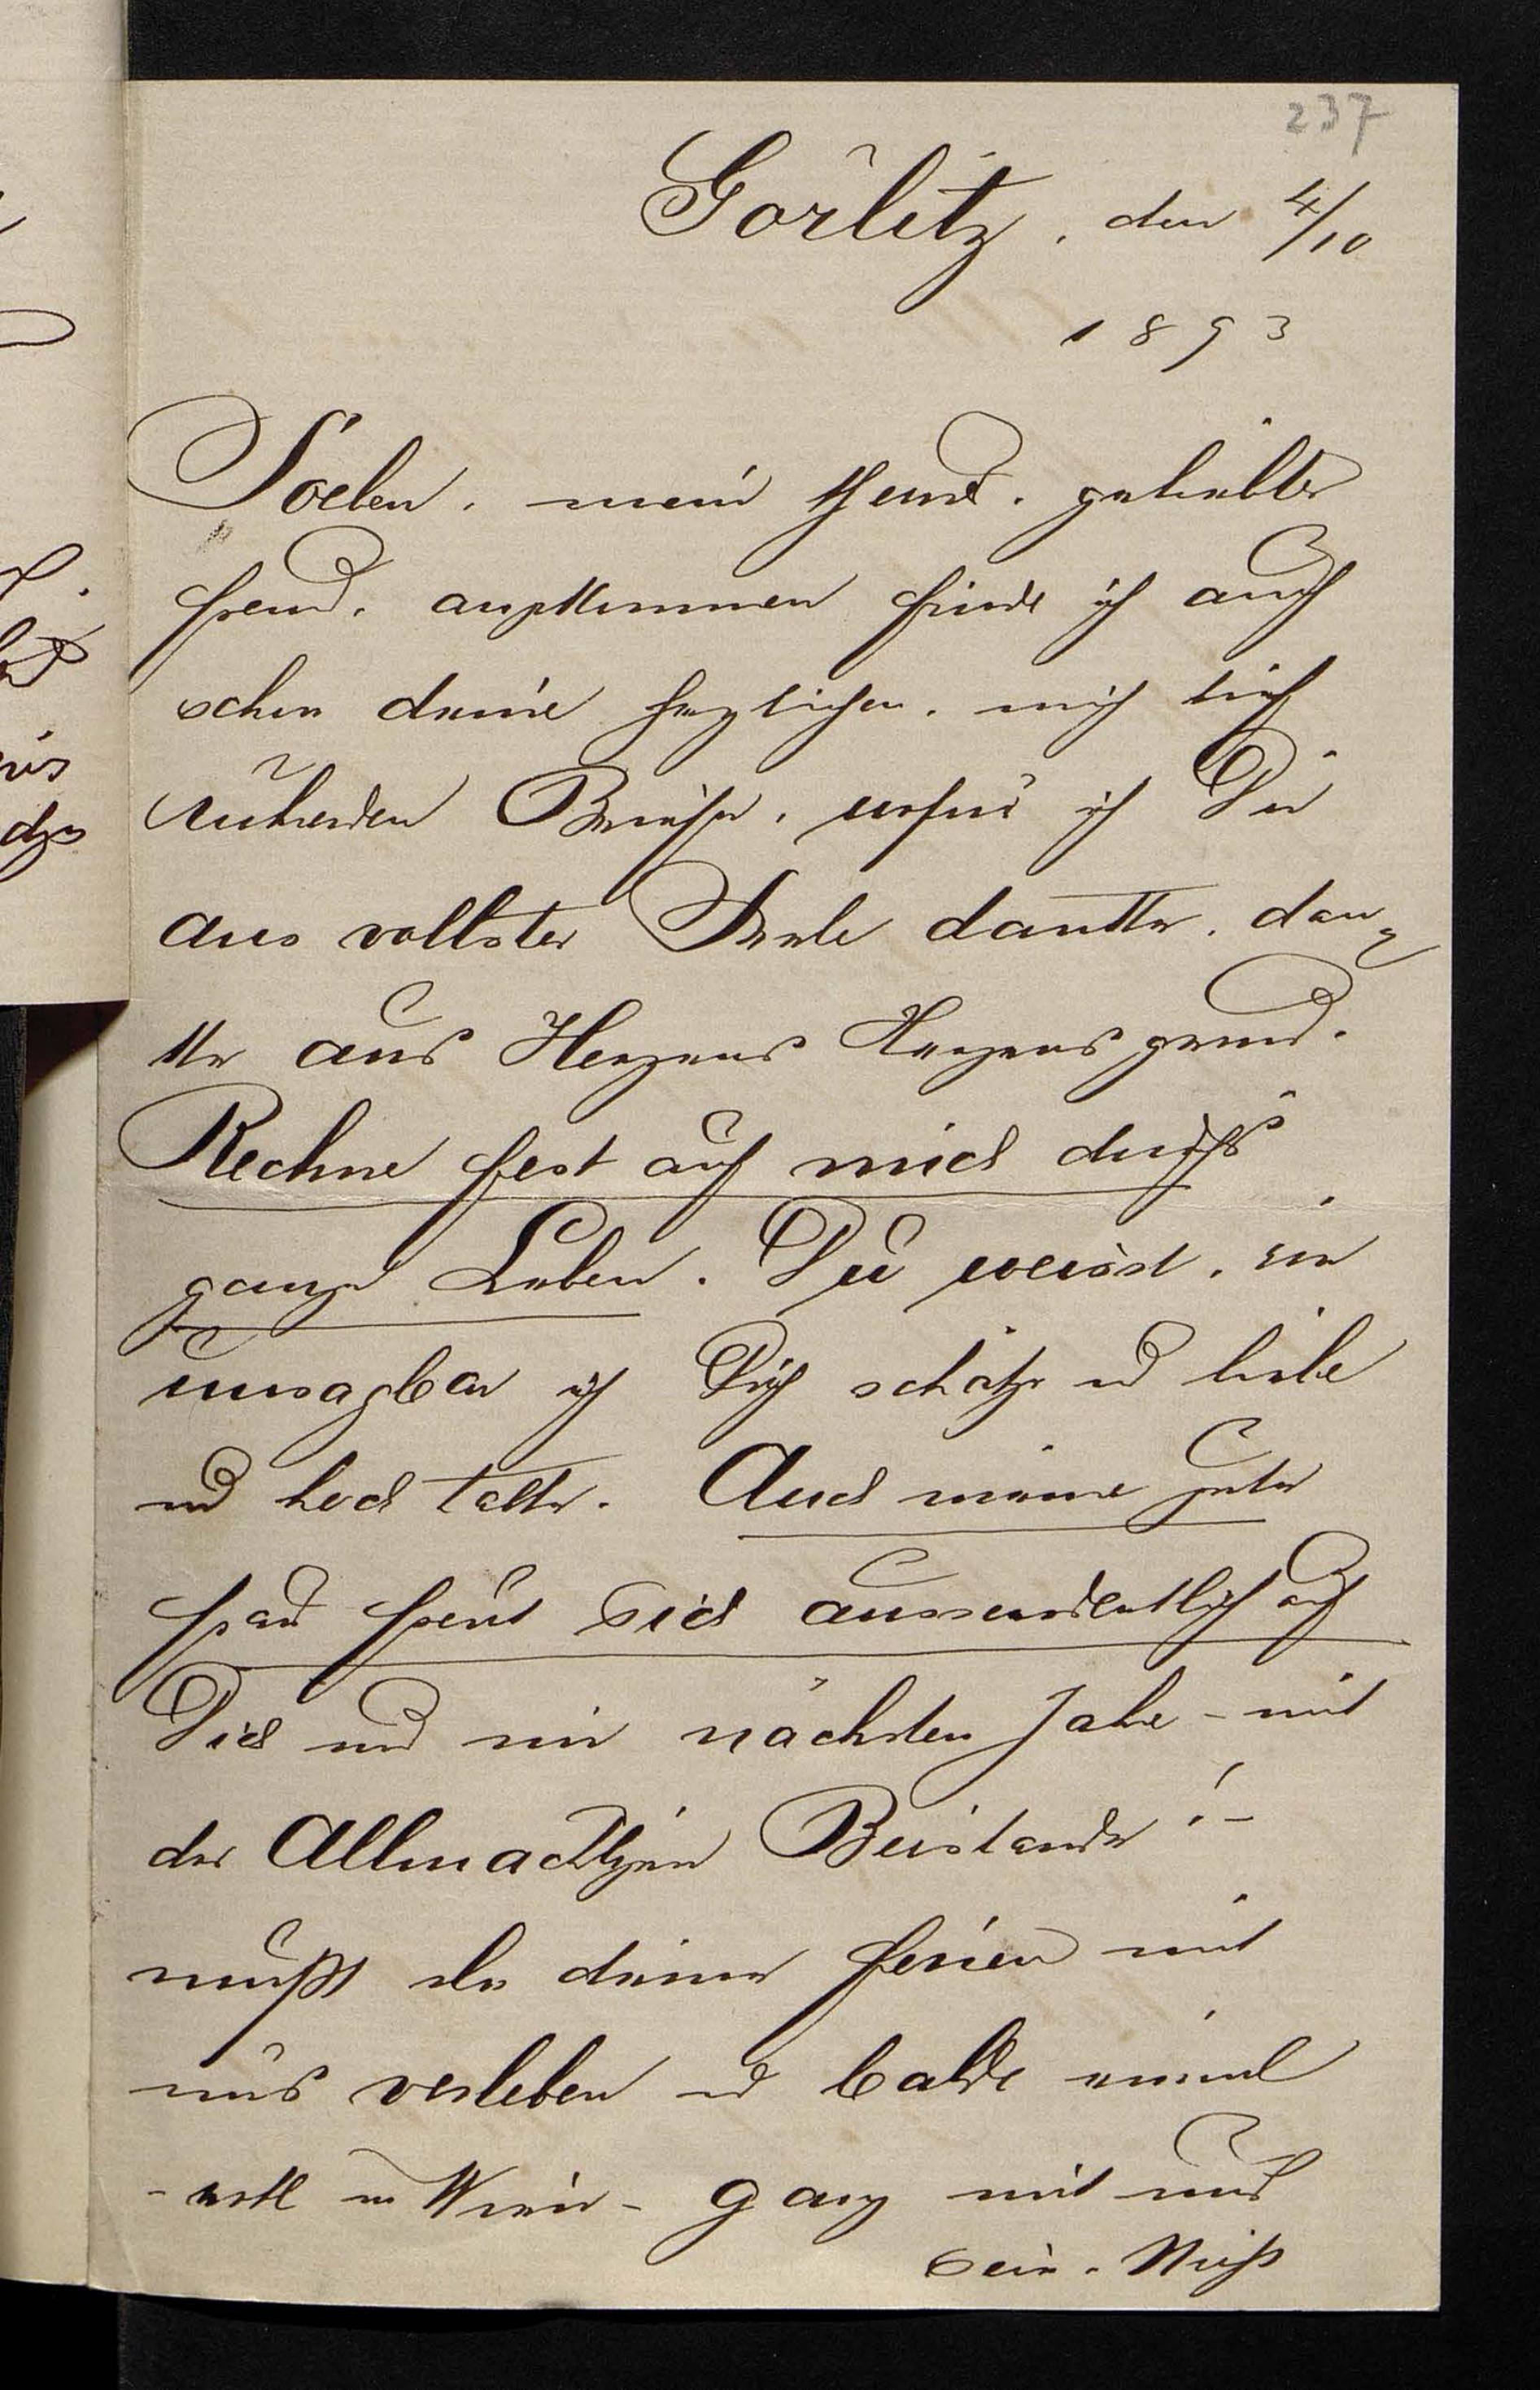 237
Görlitz, den 4/10
1893
Soeben, mein theurer, geliebter
Freund, angekommen finde ich auch
schon deine herzlichen, mich tief
rührenden Briefe, wofür ich Dir
aus vollster Seele danke, dan-
ke aus Herzens Herzensgrund.
Rechne fest auf mich durchs
ganze Leben. Du weisst, wie
unsagbar ich Dich schätze und liebe
und hochhalte. Auch meine gute
Frau freut sich ausserordentlich auf
Dich und im nächsten Jahre – mit
des Allmächtigen Beistande! –
musst du deine Ferien mit
uns verleben und balde einmal
– in Wien – ganz mit uns
sein.